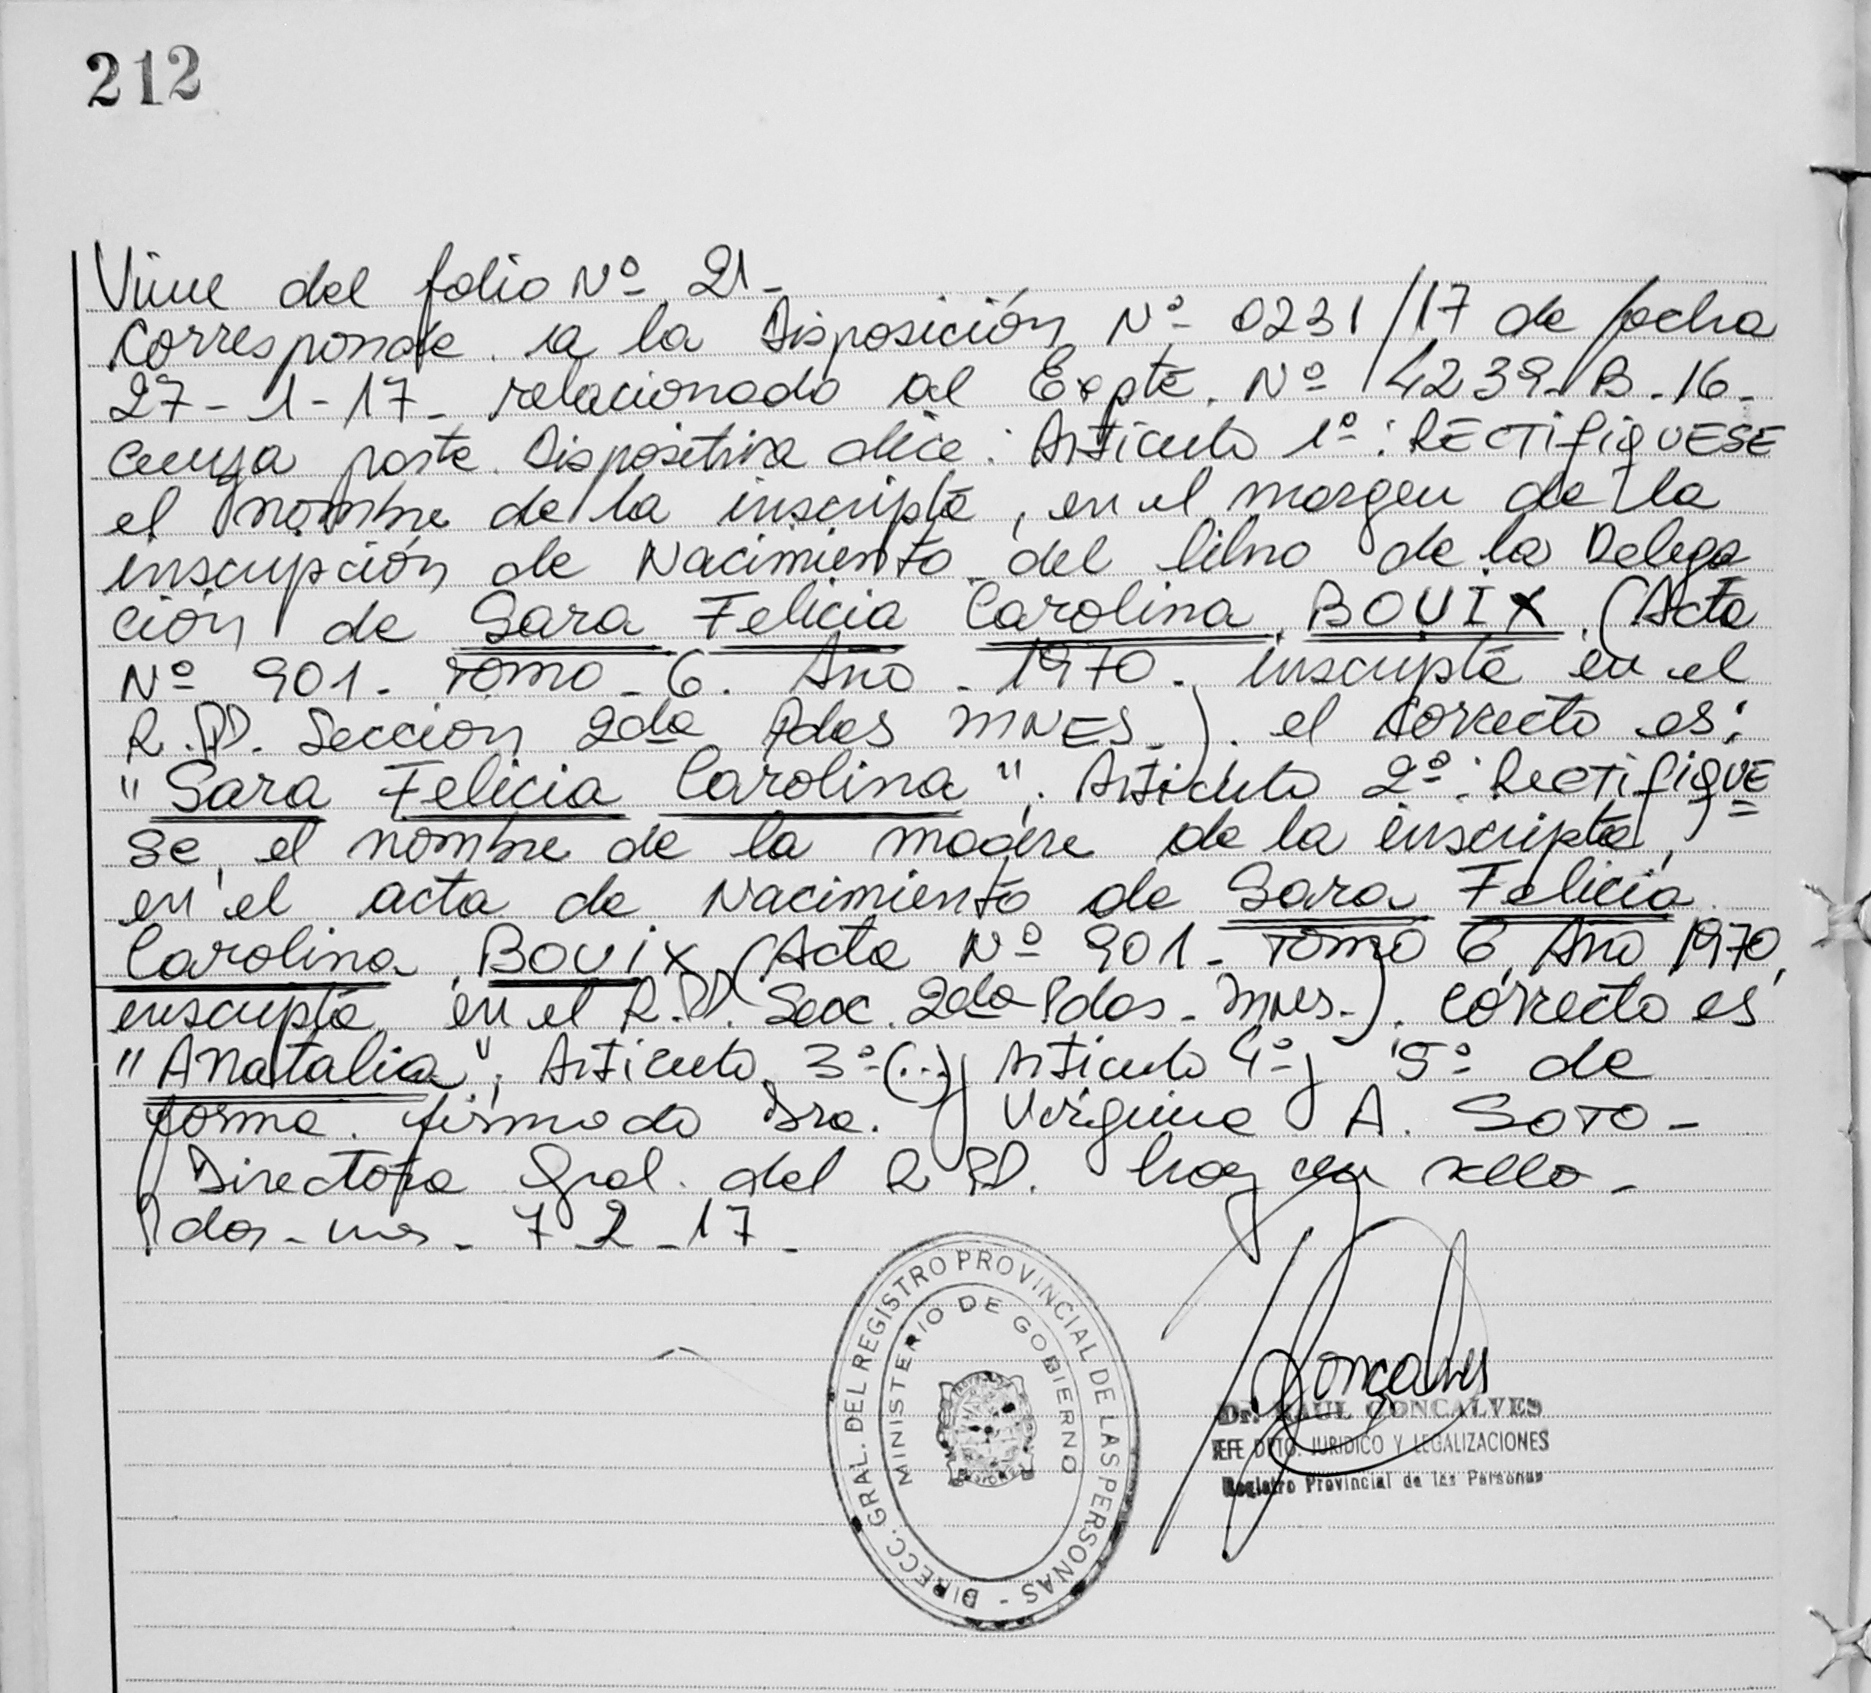 212
Viene del folio Nº 21-
Corresponde a la Disposición Nº 0231/17 de fecha
27-1-17- relacionado al Expte. Nº 4239-B-16-
cuya parte Dispositiva dice: Artículo 1º: RECTIFIQUESE
el nombre de la inscripta, en el margen de la
inscripción de Nacimiento del libro de la Delega
ción de Sara Felicia Carolina BOUIX (Acta
Nº 901- Tomo-6. Año-1970. inscripta en el
R.PP. Sección 2da Pdas MNES-). el correcto es:
"Sara Felicia Carolina". Artículo 2º: RectifiQUE
se, el nombre de la madre de la inscripta,
en el acta de Nacimiento de Sara Felicia
Carolina BOUIX (Acta Nº 901- Tomo 6, Año 1970,
inscripta en el R.PP. Secc. 2da Pdas- Mnes-). Correcto es
"ANatalia"; Artículo 3º(...) Artículo 4º y 5º de
forma. firmado Dra. Virginia A. SOTO-
Directora Gral. del R PP. hay un sello-
Pdas-mes-7-2-17-
DIRECC. GRAL. DEL REGISTRO PROVINCIAL DE LAS PERSONAS -
MINISTERIO DE GOBIERNO
Goncalves
Dr. RAUL GONCALVES
JEFE DPTO. JURIDICO Y LEGALIZACIONES
Registro Provincial de las Personas